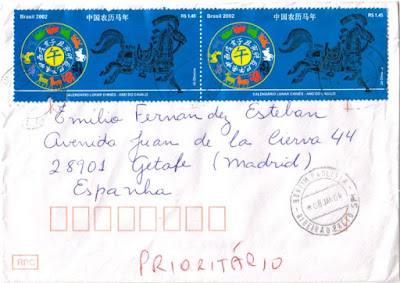 Brasil 2002 中国农历马年 R$ 1,45 Brasil 2002 中国农历马年 R$ 1,45
午 午
CALENDÁRIO LUNAR CHINÊS - ANO DO CAVALO CALENDÁRIO LUNAR CHINÊS - ANO DO CAVALO
Emilio Fernández Esteban
Avenida Juan de la Cierva 44
28901 Getafe (Madrid)
Espanha
BONFIM PAULISTA
08 JAN 04
RIBEIRÃO PRETO SP
RPC
PRIORITÁRIO